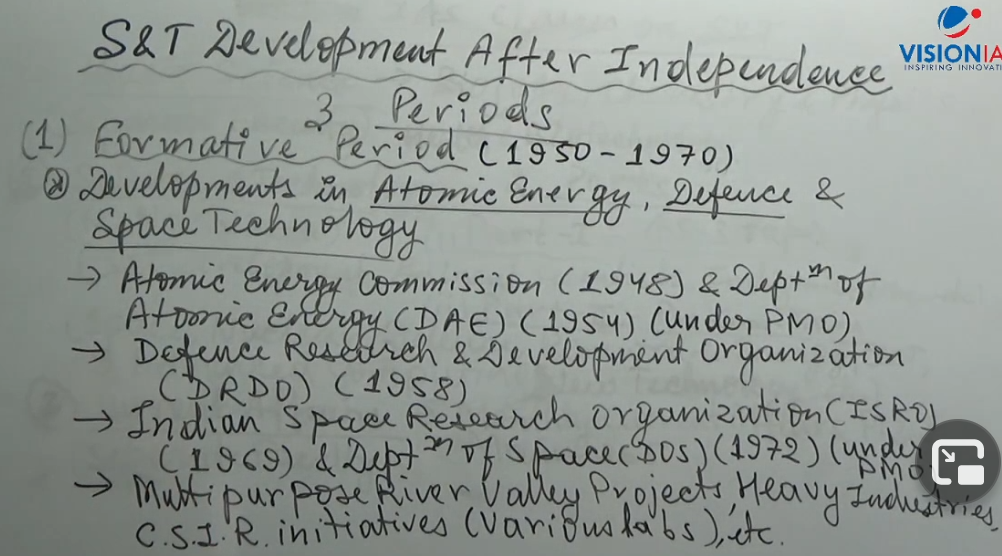 S&T Development After Independence
VISIONIA
INSPIRING INNOVATI
3 Periods
(1) Formative Period (1950-1970)
(a) Developments in Atomic Energy, Defence &
Space Technology
→ Atomic Energy Commission (1948) & Deptm of
Atomic Energy (DAE) (1954) (under PMO)
→ Defence Research & Development Organization
(DRDO) (1958)
→ Indian Space Research Organization (ISRO)
(1969) & Deptm of Space (DOS) (1972) (under
PMO)
→ Multipurpose River Valley Projects, Heavy Industries,
C.S.I.R. initiatives (various labs), etc.